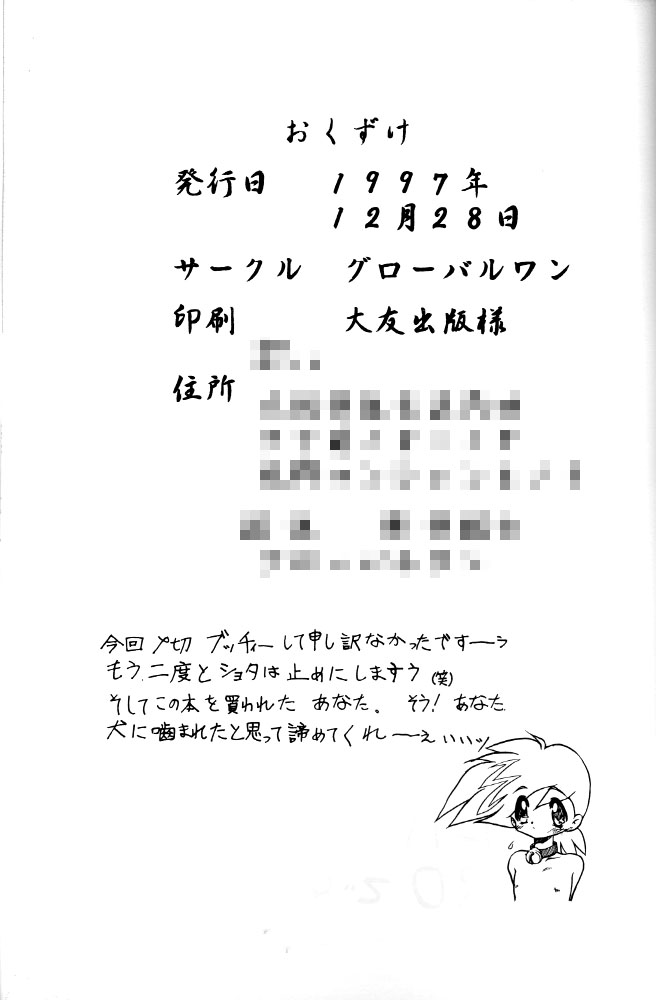 おくずけ
発行日　１９９７年
１２月２８日
サークル　グローバルワン
印刷　大友出版様
住所
今回〆切 ブッチィーして申し訳なかったですーっ
もう、二度とショタは止めにしますう(笑)
そしてこの本を買われた あなた。 そう! あなた
犬に噛まれたと思って諦めてくれーえぃぃぃッ